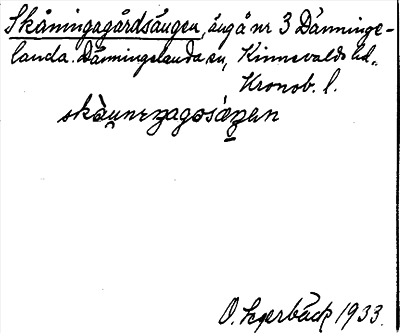 Skåningagårdsängen, äng å nr 3 Dänninge-
landa. Dänningelanda sn, Kinnevalds hd.,
Kronob. l.
skåu̯neŋagɷsäŋen
O. Segerbäck 1933.